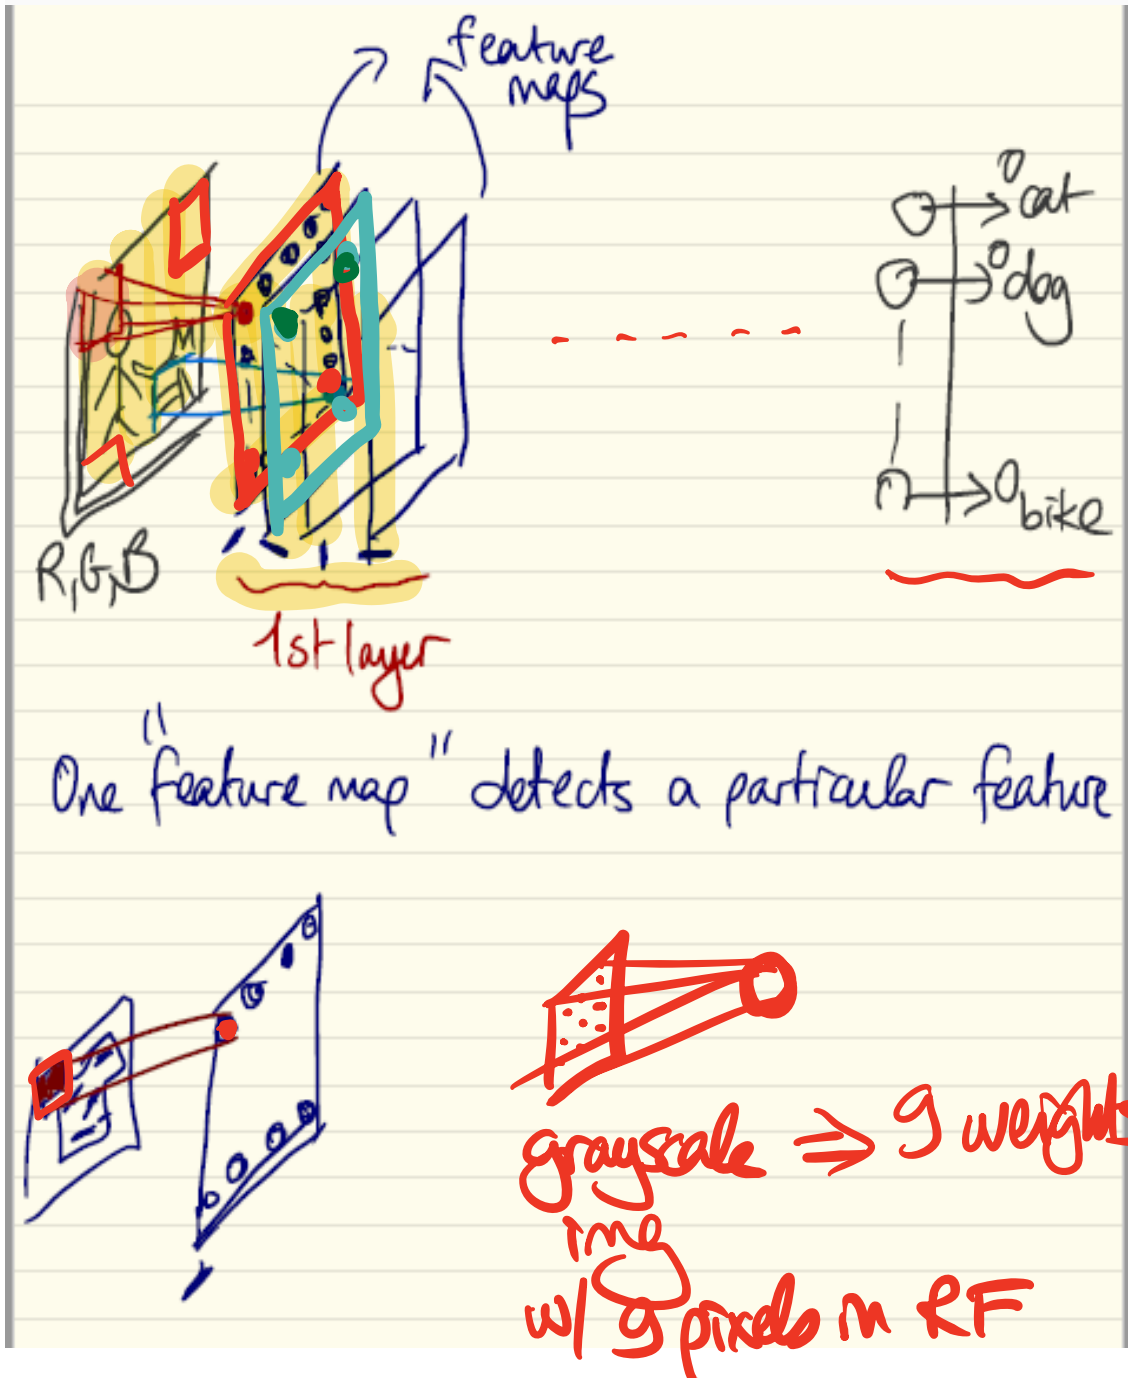 feature
maps
O cat
O dog
O bike
R,G,B
1st layer
One "feature map" detects a particular feature
grayscale ⇒ 9 weights
img
w/ 9 pixels in RF